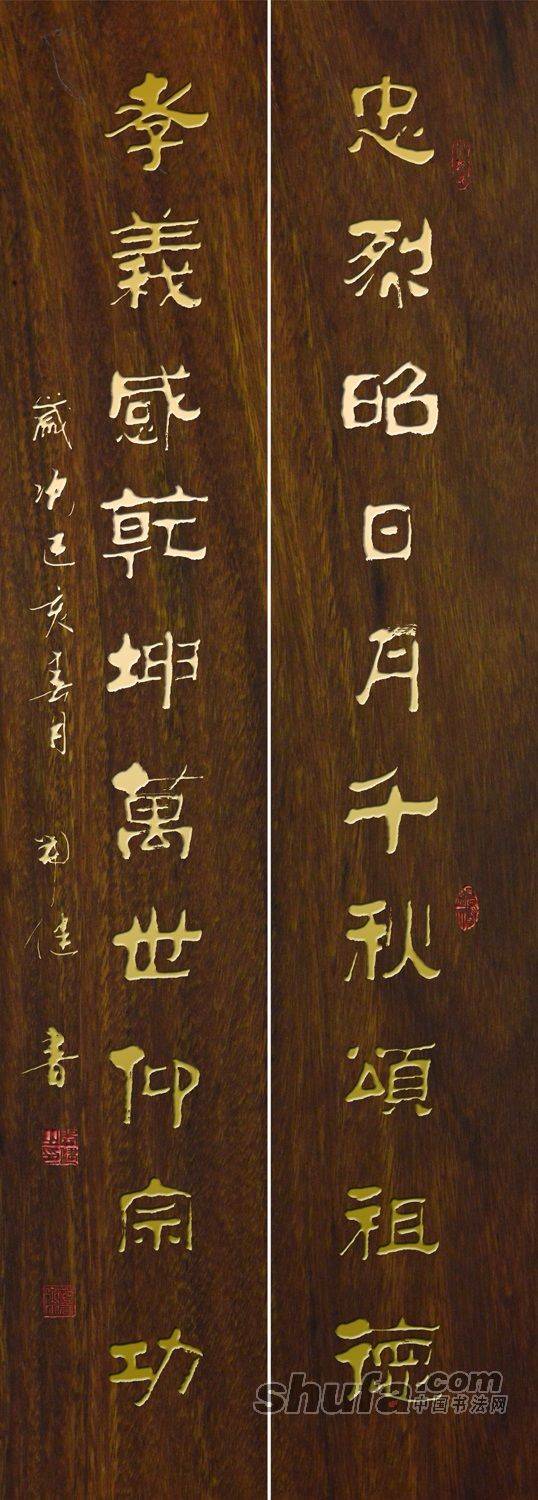 忠烈昭日月千秋頌祖德
孝義感乾坤萬世仰宗功
歲次己亥春月
健書
shufa.com
中国书法网